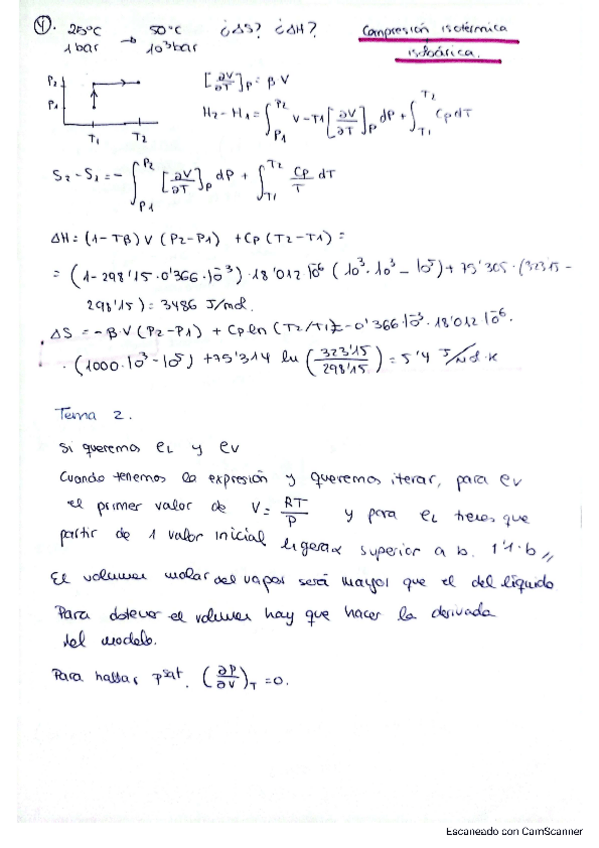 4. 25°C → 50°C ¿ΔS? ¿ΔH? Compresión isotérmica
1 bar 10³ bar isobárica.
P2
P1
T1 T2
[∂V/∂T]P = β V
H2 - H1 = ∫P1^P2 V - T1 [∂V/∂T]P dP + ∫T1^T2 Cp dT
S2 - S1 = - ∫P1^P2 [∂V/∂T]P dP + ∫T1^T2 Cp/T dT
ΔH = (1 - Tβ) V (P2 - P1) + Cp (T2 - T1) =
= (1 - 298'15 · 0'366 · 10^-3) · 18'012 10^-6 (10^3 · 10^3 - 10^5) + 75'305 · (323'15 -
298'15) = 3486 J/mol.
ΔS = - β · V (P2 - P1) + Cp ln (T2/T1) = - 0'366 · 10^-3 · 18'012 10^-6.
· (1000 · 10^3 - 10^5) + 75'314 ln (323'15/298'15) = 5'4 J/mol · K
Tema 2.
Si queremos eL y eV
Cuando tenemos la expresión y queremos iterar, para eV
el primer valor de V = RT/P y para eL tienes que
partir de 1 valor inicial ligera superior a b. 1'1 · b
El volumen molar del vapor será mayor que el del líquido
Para obtener el volumen hay que hacer la derivada
del modelo.
Para hallar Psat. (∂P/∂V)T = 0.
Escaneado con CamScanner